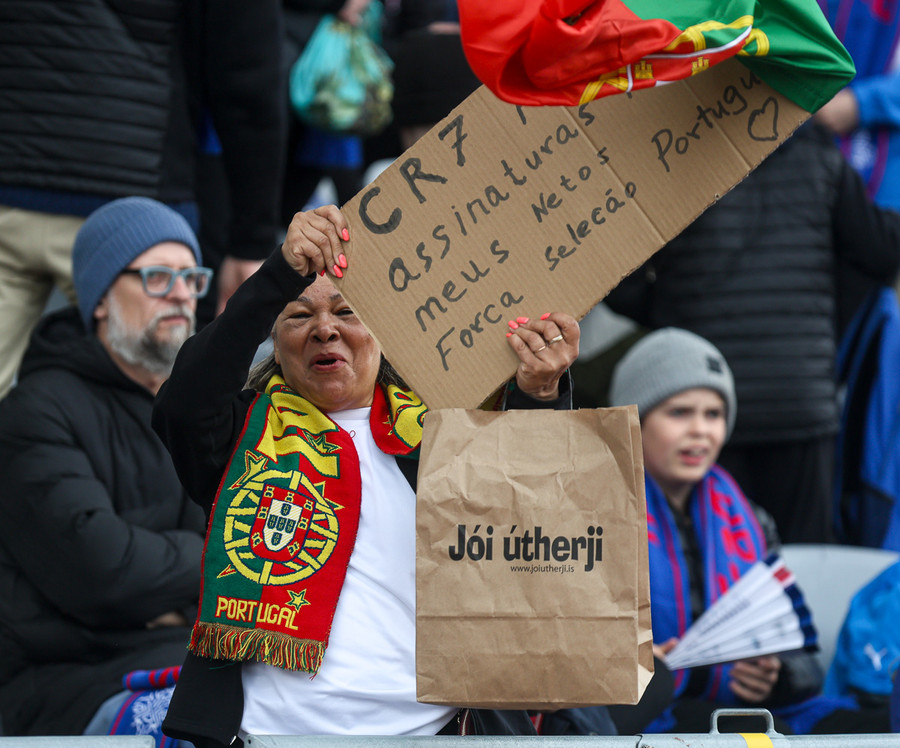 CR7
assinaturas
meus Netos
Forca seleção Portugu
PORTUGAL
Jói útherji
www.joiutherji.is